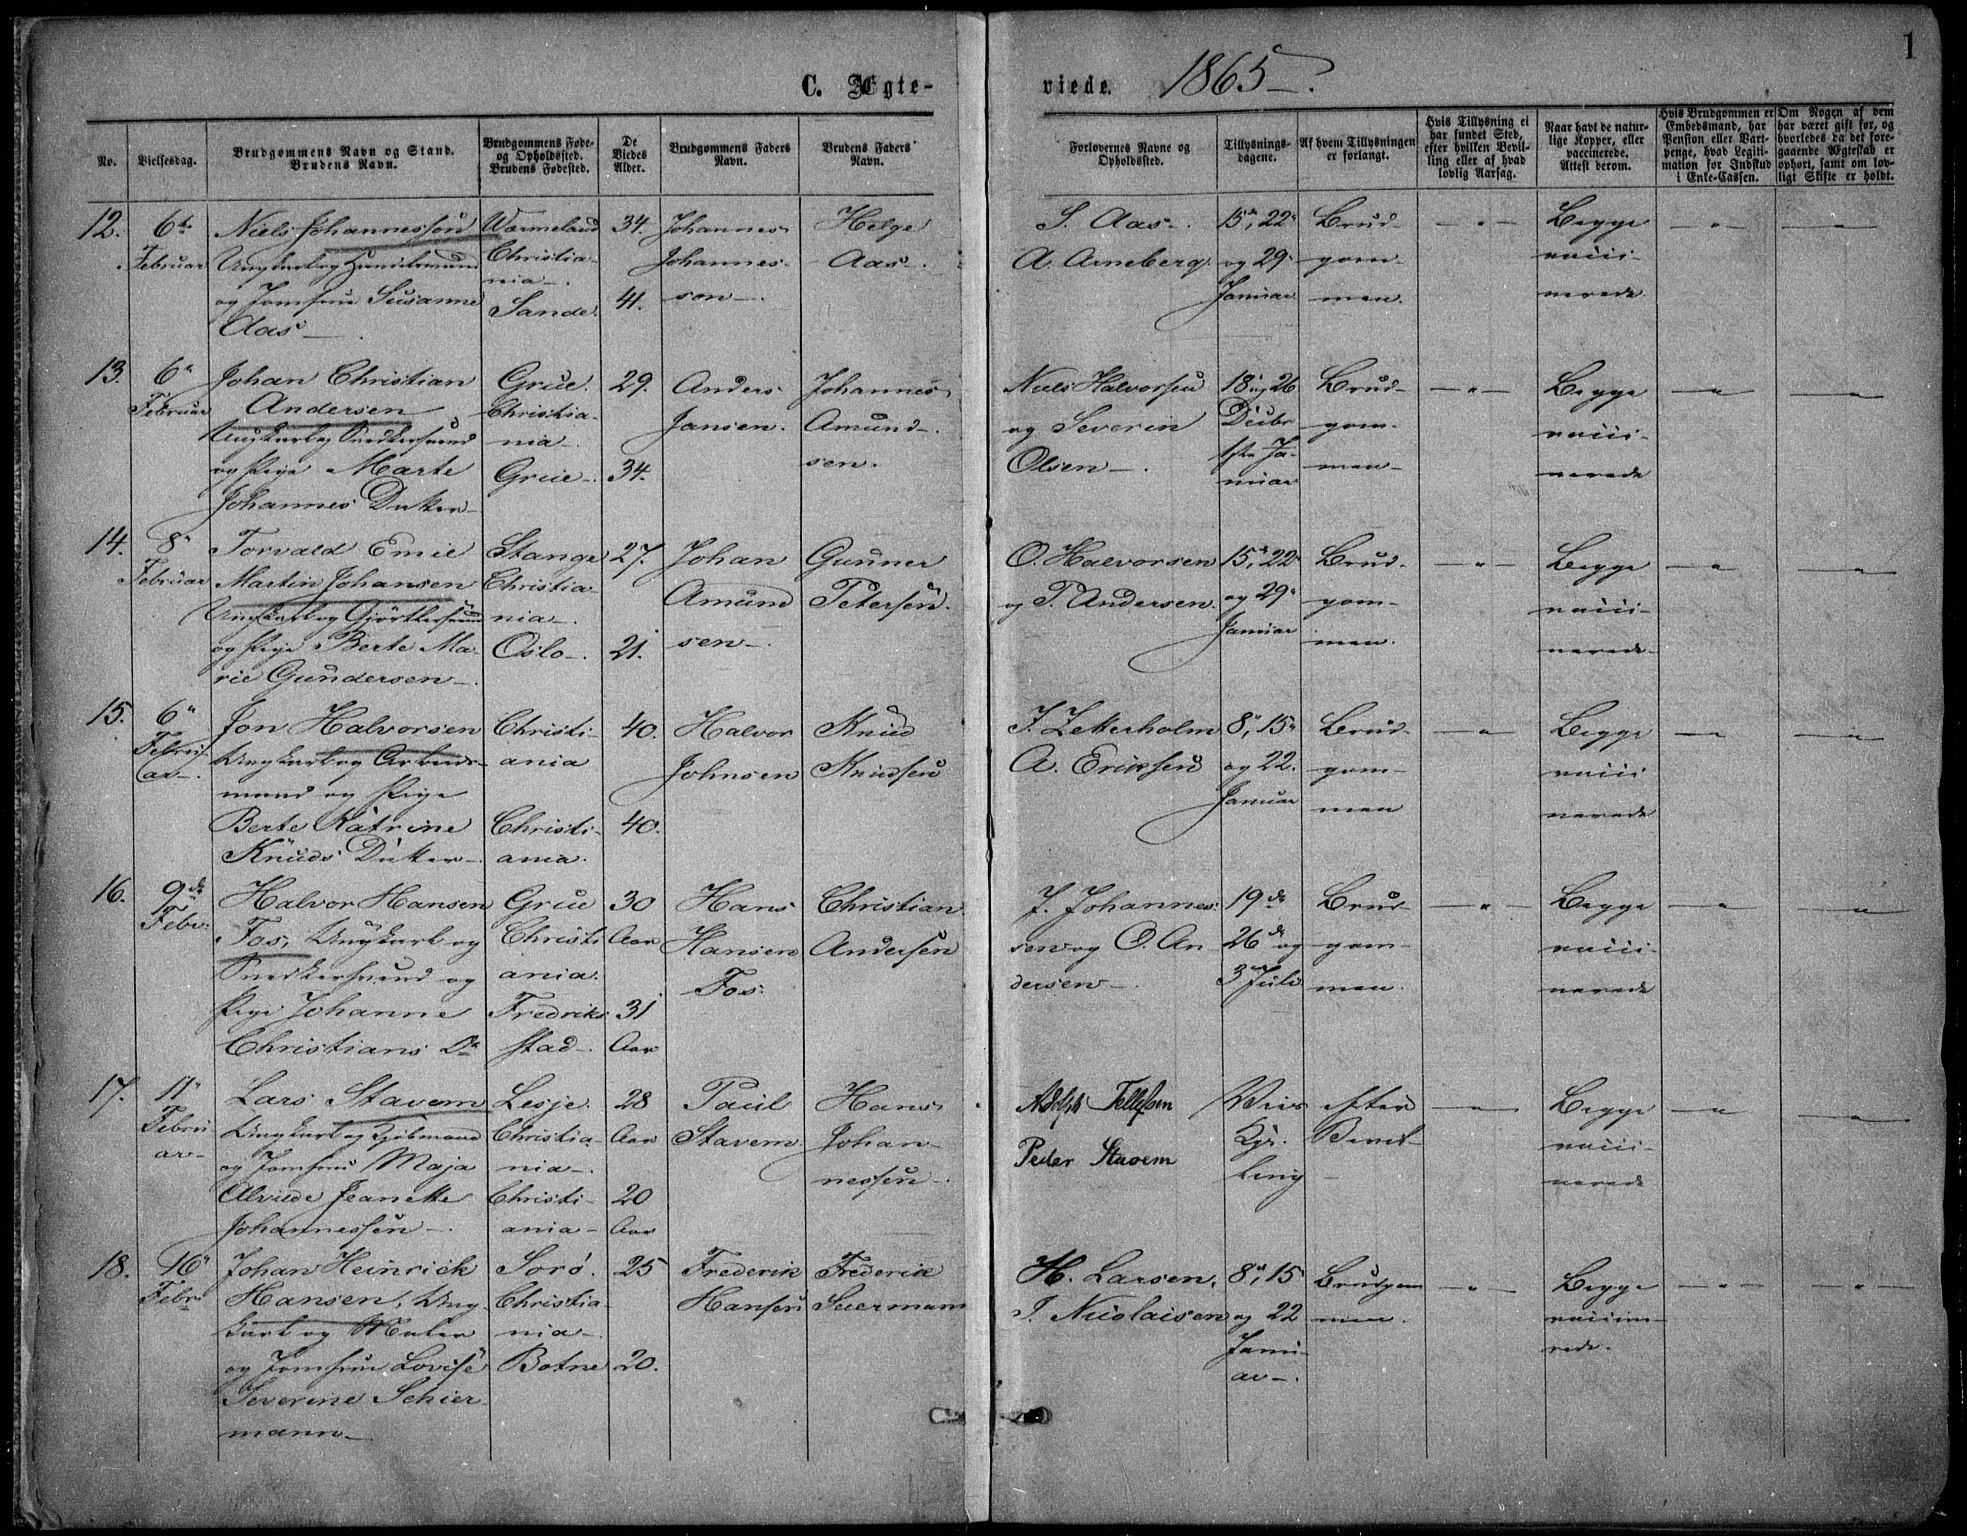 1
C. Ægte-
viede. 1865.
No.
Vielsesdag.
Brudgommens Navn og Stand.
Brudens Navn.
Brudgommens Føde-
og Opholdssted.
Brudens Fødested.
De
Viedes
Alder.
Brudgommens Faders
Navn.
Brudens Faders
Navn.
Forlovernes Navne og
Opholdssted.
Tillysnings-
dagene.
Af hvem Tillysningen
er forlangt.
Hvis Tillysning ei
har fundet Sted,
efter hvilken Bevil-
ling eller af hvad
lovlig Aarsag.
Naar havt de natur-
lige Kopper, eller
vaccinerede.
Attest derom.
Hvis Brudgommen er
Embedsmand, har
Pension eller Vart-
penge, hvad Legiti-
mation for Indskud
i Enke-Cassen.
Om Nogen af dem
har været gift før, og
hvorledes da det fore-
gaaende Ægteskab er
ophørt, samt om lov-
ligt Skifte er holdt.
12.
6te
Februar
Niels Johannesson
Ungkarl og
og Jomfrue Susanne
Aas
Warmeland
Christia-
nia
Sande
34.
41.
Johannes
Johannes-
son
Helge
Aas
S. Aas
A. Arneberg
15, 22
og 29
Januar
Brud-
gom-
men.
Begge
vacci-
nerede
13.
6
Februar
Johan Christian
Andersen
Ungkarl og Snedkersvend
og Pige Marte
Johannes Datter
Grue
Christia-
nia
Grue
29.
34.
Anders
Jansen.
Johannes
Amund-
sen.
Niels Halvorsen
og Severin
Olsen
18 og 26
Decbr
1ste Ja-
nuar
Brud-
gom-
men
Begge
vacci-
nerede
14.
8
Februar
Torvald Emil
Martin Johansen
Ungkarl og Gjørtlersvend
og Pige Berte Ma-
rie Gundersen
Stange
Christia-
nia
Oslo
27.
21.
Johan
Amund
sen
Gunner
Petersen.
O. Halvorsen
og P. Andersen.
15, 22
og 29
Januar
Brud-
gom-
men.
Begge
vacci-
nerede
15.
6
Febru-
ar
Jon Halvorsen
Ungkarl og Arbeids-
mand og Pige
Berte Katrine
Knuds Datter
Christi-
ania
Christi-
ania.
40.
40.
Halvor
Johnsen
Knud
Knudsen
J. Zetterholm
A. Eriksen
8, 15
og 22.
Januar
Brud-
gom-
men
Begge
vacci
nerede
16.
9de
Febr.
Halvor Hansen
Fos, Ungkarl og
Snedkersvend og
Pige Johanne
Christians Dr
Grue
Christi
ania.
Fredriks
stad
30
Aar
31
Aar
Hans
Hansen
Fos.
Christian
Andersen
J. Johannes
sen og O. An
dersen
19de
26de og
3 Juli
Brud-
gom-
men.
Begge
vacci-
nerede
17.
11
Febru
ar
Lars Stavem
Ungkarl og Kjøbmand
og Jomfru Maja
Alvilde Jeanette
Johannessen
Lesje
Christia-
nia
Christi-
ania
28
Aar
20
Aar
Paul
Stavem
Hans
Johan-
nessen
Adolph Tellefsen
Peder Stavem
Viet efter
Kgl. Bevil-
ling
Begge
vacci-
nerede
18.
16
Febr
Johan Heinrick
Hansen, Ung-
karl og Maler
og Jomfrue Lovise
Severine Schier
mann
Sorø.
Christia-
nia
Botne
25
20.
Frederik
Hansen
Frederik
H. Larsen,
J. Nicolaisen
8, 15
og 22
Janu-
ar
Brudgom
men.
Begge
vaccine-
rede.